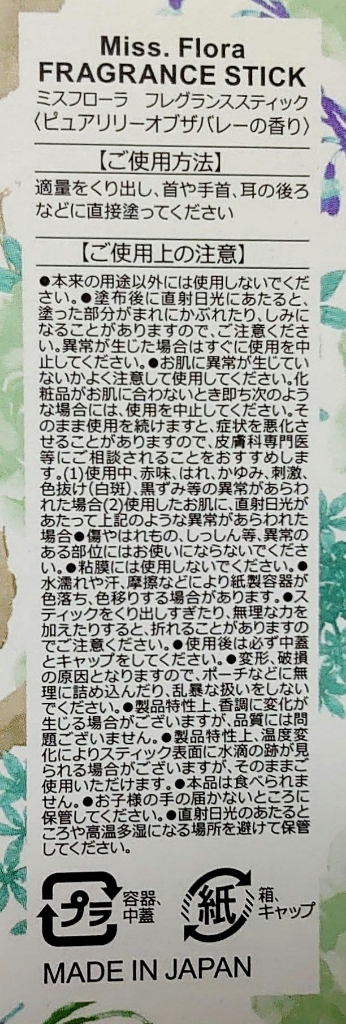 Miss. Flora
FRAGRANCE STICK
ミスフローラ　フレグランススティック
〈ピュアリリーオブザバレーの香り〉
【ご使用方法】
適量をくり出し、首や手首、耳の後ろ
などに直接塗ってください
【ご使用上の注意】
●本来の用途以外には使用しないでくだ
さい。●塗布後に直射日光にあたると、
塗った部分がまれにかぶれたり、しみに
なることがありますので、ご注意くださ
い。異常が生じた場合はすぐに使用を中
止してください。●お肌に異常が生じてい
ないかよく注意して使用してください。化
粧品がお肌に合わないとき即ち次のよう
な場合には、使用を中止してください。そ
のまま使用を続けますと、症状を悪化さ
せることがありますので、皮膚科専門医
等にご相談されることをおすすめしま
す。(1)使用中、赤味、はれ、かゆみ、刺激、
色抜け(白斑)、黒ずみ等の異常があらわ
れた場合(2)使用したお肌に、直射日光が
あたって上記のような異常があらわれた
場合●傷やはれもの、しっしん等、異常の
ある部位にはお使いにならないでくださ
い。●粘膜には使用しないでください。●
水濡れや汗、摩擦などにより紙製容器が
色落ち、色移りする場合があります。●ス
ティックをくり出しすぎたり、無理な力を
加えたりすると、折れることがありますの
でご注意ください。●使用後は必ず中蓋
とキャップをしてください。●変形、破損
の原因となりますので、ポーチなどに無
理に詰め込んだり、乱暴な扱いをしない
でください。●製品特性上、香調に変化が
生じる場合がございますが、品質には問
題ございません。●製品特性上、温度変
化によりスティック表面に水滴の跡が見
られる場合がございますが、そのままご
使用いただけます。●本品は食べられま
せん。●お子様の手の届かないところに
保管してください。●直射日光のあたると
ころや高温多湿になる場所を避けて保管
してください。
プラ 容器、
中蓋
紙 箱、
キャップ
MADE IN JAPAN